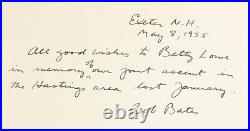 Exeter N.H.
May 8, 1955
All good wishes to Betty Lowe
in memory of our joint ascent in
the Hastings area last January.
Bob Bates